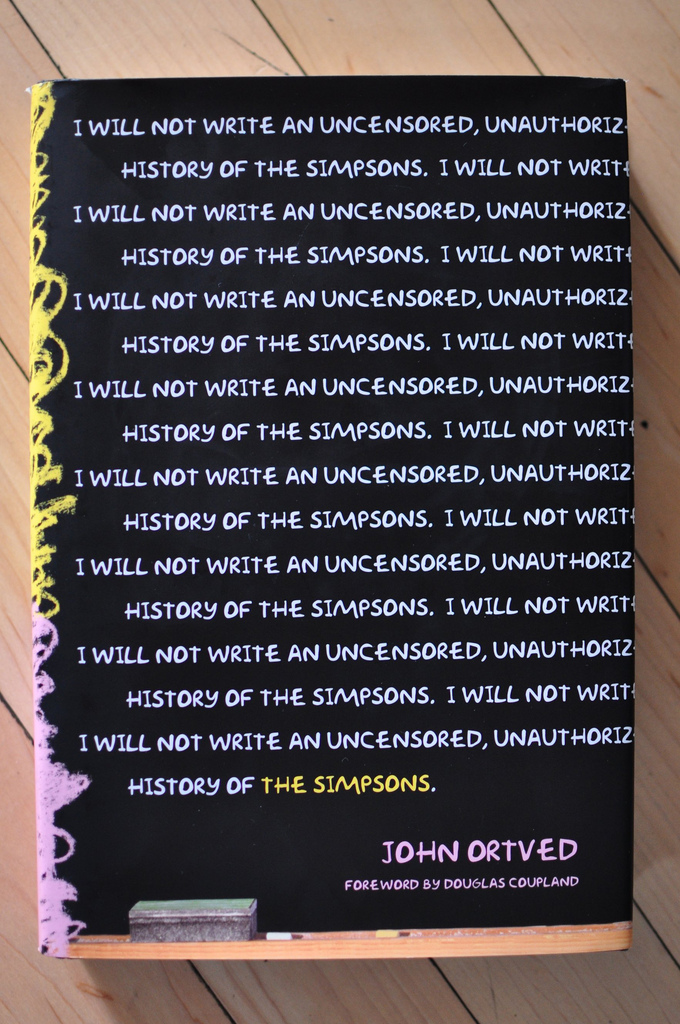 I WILL NOT WRITE AN UNCENSORED, UNAUTHORIZ-
HISTORY OF THE SIMPSONS. I WILL NOT WRITE
I WILL NOT WRITE AN UNCENSORED, UNAUTHORIZ-
HISTORY OF THE SIMPSONS. I WILL NOT WRITE
I WILL NOT WRITE AN UNCENSORED, UNAUTHORIZ-
HISTORY OF THE SIMPSONS. I WILL NOT WRITE
I WILL NOT WRITE AN UNCENSORED, UNAUTHORIZ-
HISTORY OF THE SIMPSONS. I WILL NOT WRITE
I WILL NOT WRITE AN UNCENSORED, UNAUTHORIZ-
HISTORY OF THE SIMPSONS. I WILL NOT WRITE
I WILL NOT WRITE AN UNCENSORED, UNAUTHORIZ-
HISTORY OF THE SIMPSONS. I WILL NOT WRITE
I WILL NOT WRITE AN UNCENSORED, UNAUTHORIZ-
HISTORY OF THE SIMPSONS. I WILL NOT WRITE
I WILL NOT WRITE AN UNCENSORED, UNAUTHORIZ-
HISTORY OF THE SIMPSONS.
JOHN ORTVED
FOREWORD BY DOUGLAS COUPLAND